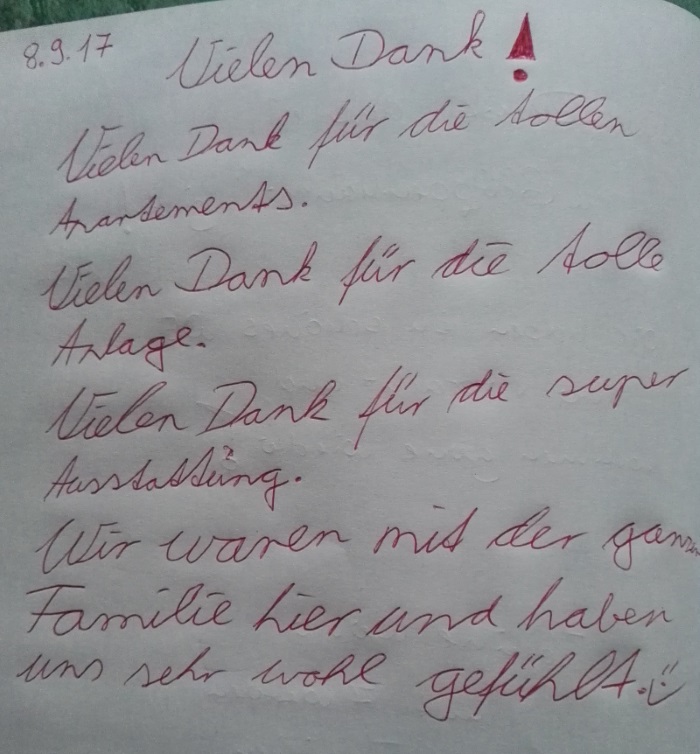 8.9.17 Vielen Dank!
Vielen Dank für die tollen
Apartements.
Vielen Dank für die tolle
Anlage.
Vielen Dank für die super
Ausstattung.
Wir waren mit der ganzen
Familie hier und haben
uns sehr wohl gefühlt. :)